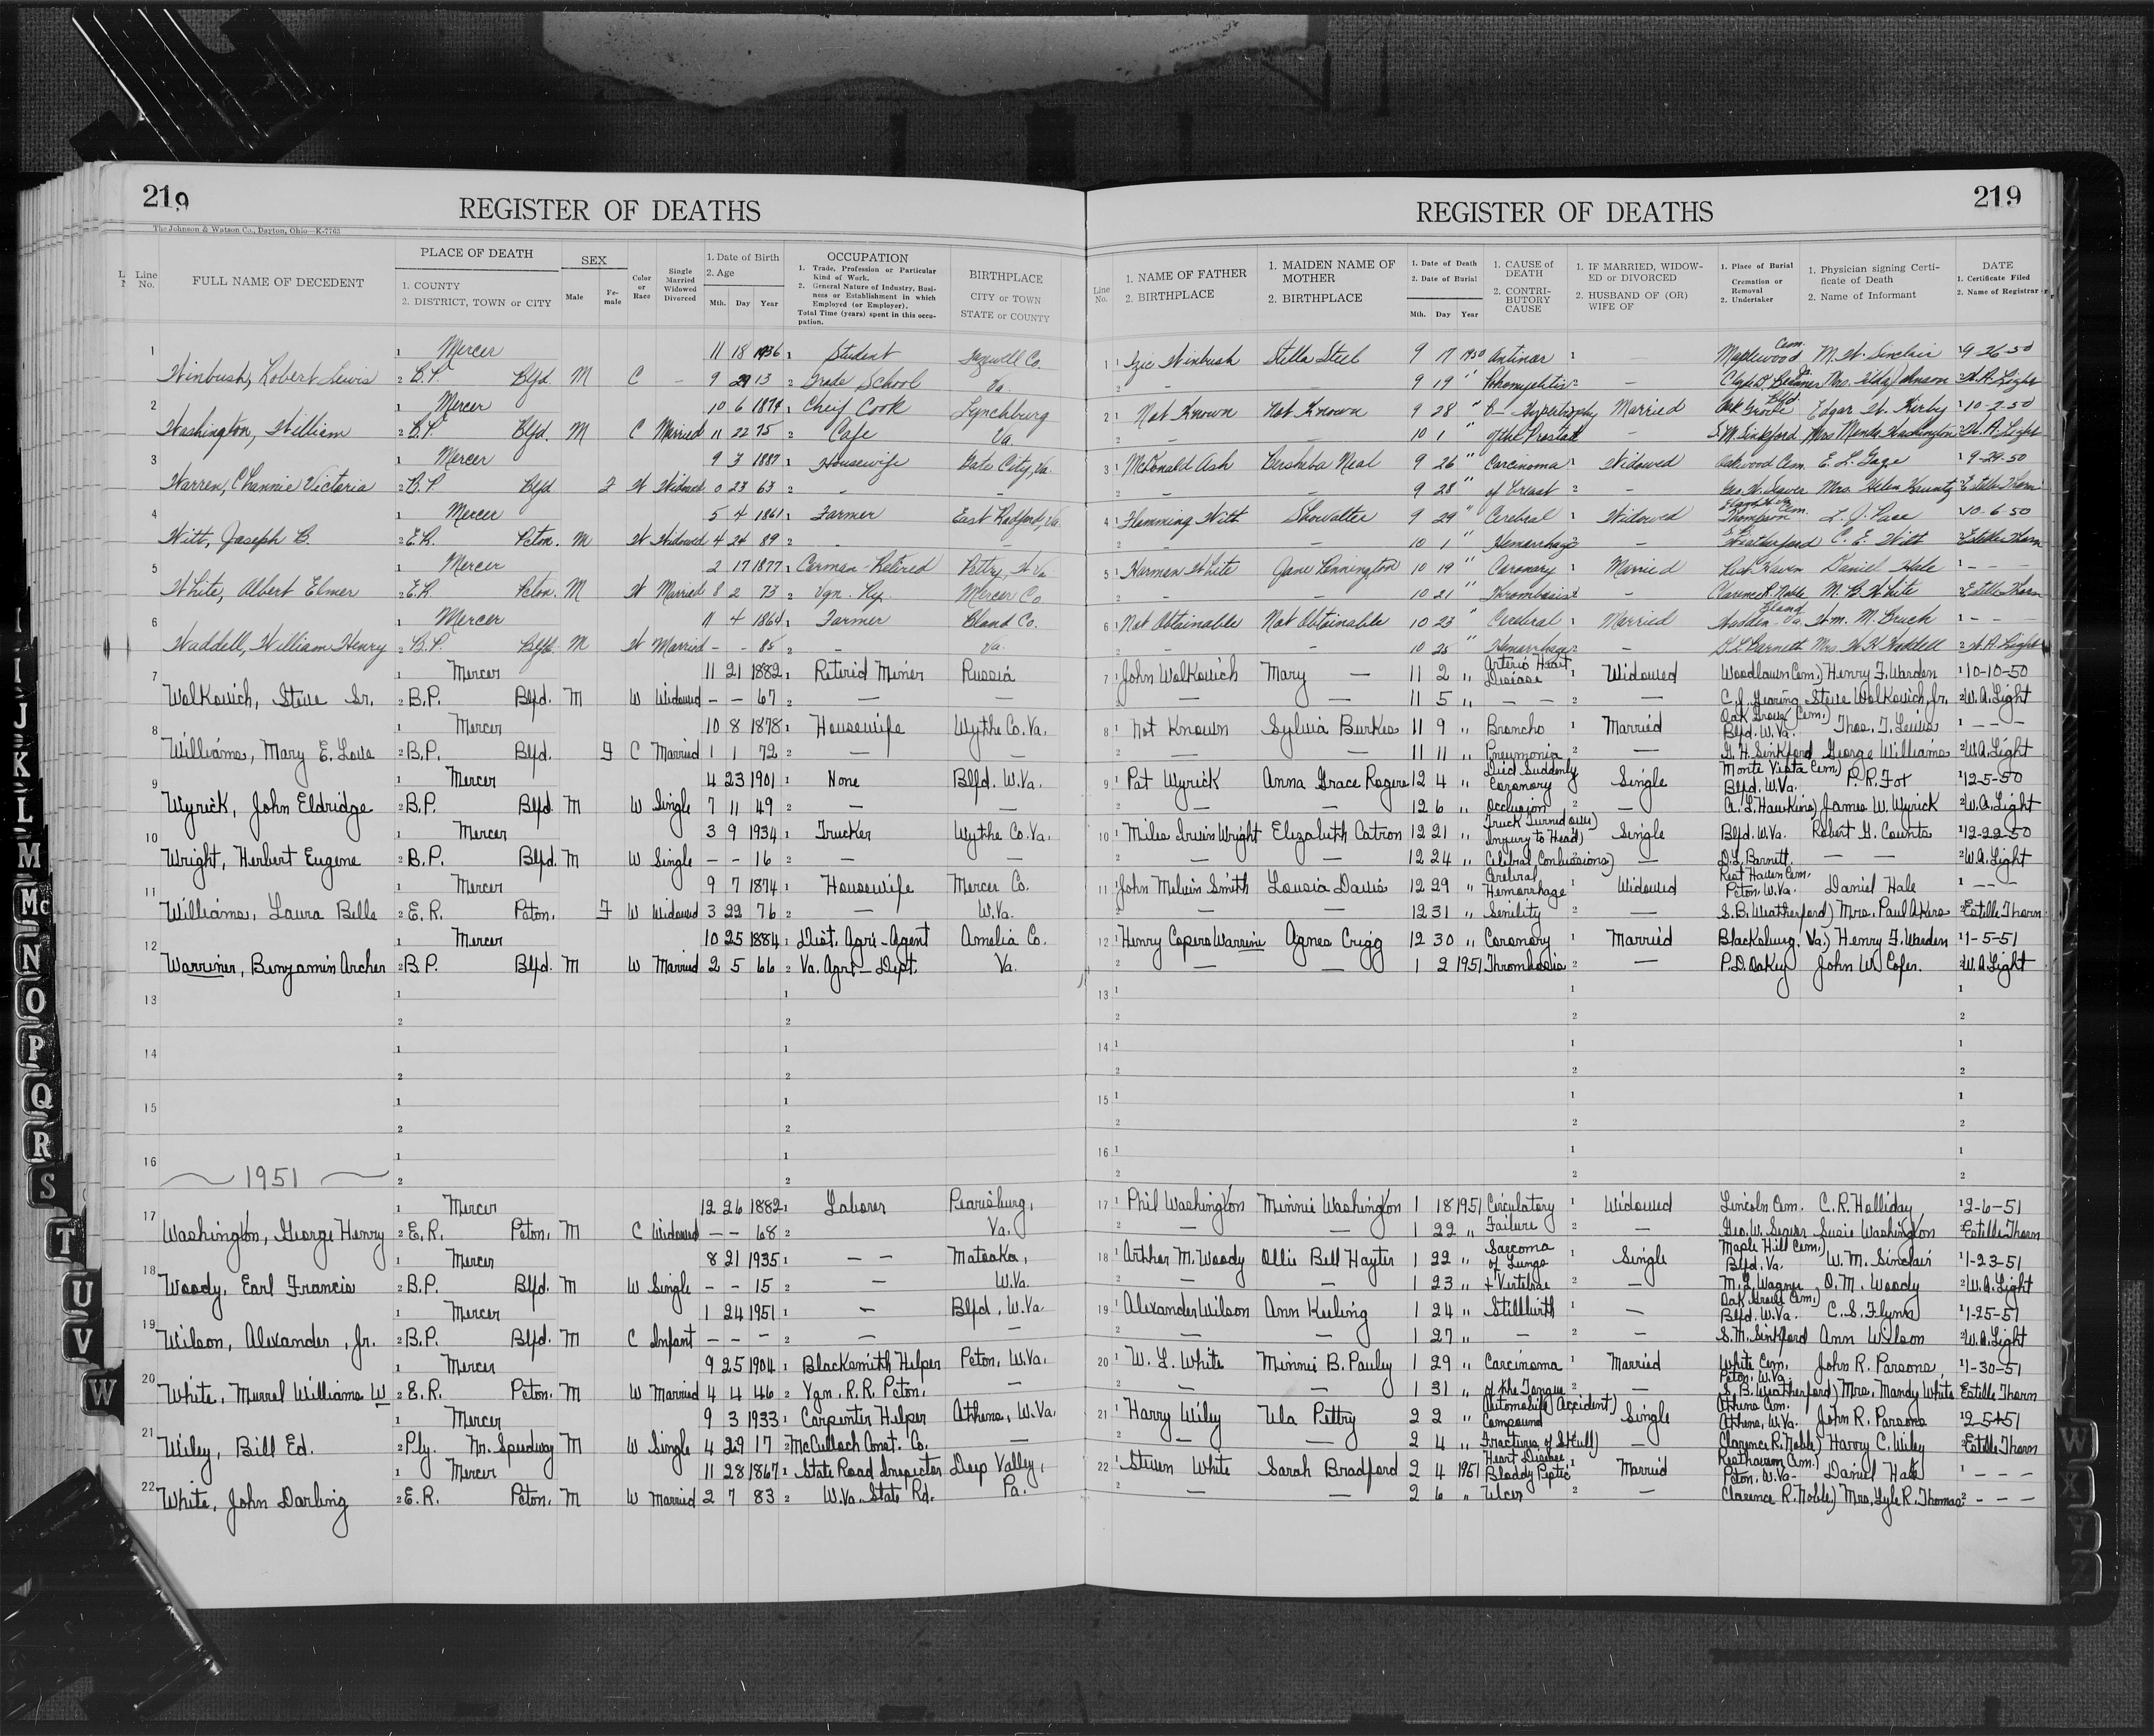 219
REGISTER OF DEATHS
The Johnson & Watson Co., Dayton, Ohio—K-7763
Line No.
FULL NAME OF DECEDENT
PLACE OF DEATH
1. COUNTY
2. DISTRICT, TOWN or CITY
SEX
Male
Fe-male
Color or Race
Single Married Widowed Divorced
1. Date of Birth
2. Age
Mth. Day Year
OCCUPATION
1. Trade, Profession or Particular Kind of Work.
2. General Nature of Industry, Business or Establishment in which Employed (or Employer).
Total Time (years) spent in this occupation.
BIRTHPLACE
CITY or TOWN
STATE or COUNTY
1 1 Mercer 11 18 1936 1 Student Tazewell Co.
Winbush, Robert Lewis 2 B.P. Blfd. M C - 9 29 13 2 Grade School Va.
2 1 Mercer 10 6 1874 1 Cheif Cook Lynchburg
Washington, William 2 B.P. Blfd. M C Married 11 22 75 2 Cafe Va.
3 1 Mercer 9 3 1887 1 Housewife Gate City, Va.
Warren, Channie Victoria 2 B.P. Blfd F W Widowed 0 23 63 2 - -
4 1 Mercer 5 4 1861 1 Farmer East Radford, Va.
Witt, Joseph B. 2 E.R. Pcton. M W Widowed 4 24 89 2 - -
5 1 Mercer 2 17 1877 1 Carman-Retired Pettry, W Va
White, Albert Elmer 2 E.R. Pcton. M W Married 8 2 73 2 Vgn. Ry. Mercer Co
6 1 Mercer 11 4 1864 1 Farmer Bland Co.
Waddell, William Henry 2 B.P. Blfd. M W Married - - 85 2 - Va.
7 1 Mercer 11 21 1882 1 Retired Miner Russia
Wolkovich, Steve Sr. 2 B.P. Blfd. M W Widowed - - 67 2 - -
8 1 Mercer 10 8 1878 1 Housewife Wythe Co. Va.
Williams, Mary E. Love 2 B.P. Blfd. F C Married 1 1 72 2 - -
9 1 Mercer 4 23 1901 1 None Blfd. W.Va.
Wyrick, John Eldridge 2 B.P. Blfd M W Single 7 11 49 2 - -
10 1 Mercer 3 9 1934 1 Trucker Wythe Co. Va.
Wright, Herbert Eugene 2 B.P. Blfd. M W Single - - 16 2 - -
11 1 Mercer 9 7 1874 1 Housewife Mercer Co.
Williams, Laura Belle 2 E.R. Pcton. F W Widowed 3 22 76 2 - W.Va.
12 1 Mercer 10 25 1884 1 Dist. Agri-Agent Amelia Co.
Warriner, Benjamin Archer 2 B.P. Blfd. M W Married 2 5 66 2 Va. Agri-Dept. Va.
13 1 1
2 2
14 1 1
2 2
15 1 1
2 2
16 1 1
1951 2 2
17 1 Mercer 12 26 1882 1 Laborer Pearisburg,
Washington, George Henry 2 E.R. Pcton, M C Widowed - - 68 2 Va.
18 1 Mercer 8 21 1935 1 - - Matoaka,
Woody, Earl Francis 2 B.P. Blfd. M W Single - - 15 2 - W.Va.
19 1 Mercer 1 24 1951 1 - Blfd, W.Va.
Wilson, Alexander, Jr. 2 B.P. Blfd. M C Infant - - - 2 - -
20 1 Mercer 9 25 1904 1 Blacksmith Helper Pcton, W.Va.
White, Murrel Williams W 2 E.R. Pcton. M W Married 4 4 46 2 Vgn. R.R. Pcton. -
21 1 Mercer 9 3 1933 1 Carpenter Helper Athens, W.Va.
Wiley, Bill Ed. 2 Ply. Nr. Speedway M W Single 4 29 17 2 McCulloch Const. Co. -
22 1 Mercer 11 28 1867 1 State Road Inspector Deep Valley,
White, John Darling 2 E.R. Pcton, M W Married 2 7 83 2 W.Va. State Rd. Pa.
219
REGISTER OF DEATHS
Line No.
1. NAME OF FATHER
2. BIRTHPLACE
1. MAIDEN NAME OF MOTHER
2. BIRTHPLACE
1. Date of Death
2. Date of Burial
Mth. Day Year
1. CAUSE of DEATH
2. CONTRIBUTORY CAUSE
1. IF MARRIED, WIDOWED or DIVORCED
2. HUSBAND OF (OR) WIFE OF
1. Place of Burial Cremation or Removal
2. Undertaker
1. Physician signing Certificate of Death
2. Name of Informant
DATE
1. Certificate Filed
2. Name of Registrar
1 1 Izie Winbush Stella Steel 9 17 1950 1 - Maplewood Cem. M. W. Sinclair 1 9-26-50
2 - - 9 19 " 2 - Clyde Mrs. Ilda Johnson 2 W.A. Light
2 1 Not Known Not Known 9 28 " Hypertrophy Married Oak Grove Blfd. Edgar W. Kirby 1 10-2-50
2 - - 10 1 " of the Prostate - S.M. Sinkford Mrs Washington 2 W.A. Light
3 1 McDonald Ash Bersheba Neal 9 26 " Carcinoma 1 Widowed Oakwood Cem. E. L. Gage 1 9-29-50
2 - - 9 28 " of breast 2 - Geo. W. Seaver Mrs. Helen 2 Estelle Thorn
4 1 Flemming Witt Showalter 9 29 " Cerebral 1 Widowed Thompson Cem. L. J. Pace 1 10-6-50
2 - - 10 1 " Hemorrhage 2 - Weatherford C. E. Witt 2 Estelle Thorn
5 1 Harman White Jane Pennington 10 19 " Coronary 1 Married Rest Haven Daniel Hale 1 - -
2 - - 10 21 " Thrombosis 2 - Clarence R. Noble M. B. White 2 Estelle Thorn
6 1 Not Obtainable Not Obtainable 10 23 " Cerebral 1 Married Bland Va. Wm. M. 1 - - -
2 - - 10 25 " Hemorrhage 2 - D. L. Barnett Mrs. W. H. Waddell 2 W.A. Light
7 1 John Wolkovich Mary - 11 2 " Arterio Heart Disease 1 Widowed Woodlawn Cem.) Henry F. Warden 1 10-10-50
2 - - 11 5 " - - 2 - C.J. Gearing Steve Wolkovich, Jr. 2 W.A. Light
8 1 Not Known Sylvia Burkes 11 9 " Broncho 1 Married Oak Grove (Cem.) Blfd. W.Va. Thos. F. Lewis 1 - - -
2 - - 11 11 " Pneumonia 2 - G.H. Sinkford George Williams 2 W.A. Light
9 1 Pat Wyrick Anna Grace Rogers 12 4 " Died Suddenly Coronary Single Monte Vista Cem.) Blfd. W.Va. P. R. Fox 1 12-5-50
2 - - 12 6 " Occlusion 2 - A. L. Hawkins) James W. Wyrick 2 W.A. Light
10 1 Miles Irvin Wright Elizabeth Catron 12 21 " Truck Turned over) Injury to Head) Single Blfd. W.Va. Robert G. Counts 1 12-22-50
2 - - 12 24 " Celibral Conlussions) - D.L. Barnett. - - 2 W.A. Light
11 1 John Melvin Smith Lousia Davis 12 29 " Cerebral Hemorrhage 1 Widowed Rest Haven Cem. Pcton, W.Va. Daniel Hale 1 - - -
2 - - 12 31 " Senility 2 - S. B. Weatherford) Mrs. Paul Akers 2 Estelle Thorn
12 1 Henry Warrine Agnes Crigg 12 30 " Coronary 1 Married Blacksburg, Va.) Henry F. Warden 1 1-5-51
2 - - 1 2 1951 Thrombosis 2 - P.D. Oakey John W. Cofer. 2 W.A. Light
13 1 1 1
2 2 2
14 1 1 1
2 2 2
15 1 1 1
2 2 2
16 1 1 1
2 2 2
17 1 Phil Washington Minnie Washington 1 18 1951 Circulatory 1 Widowed Lincoln Cem. C. R. Halliday 1 2-6-51
2 - - 1 22 " Failure 2 - Geo. W. Seaver Susie Washington Estelle Thorn
18 1 Arthor M. Woody Ollie Bell Hayter 1 22 " Sarcoma of Lungs 1 Single Maple Hill Cem.) Blfd. Va. W. M. Sinclair 1 1-23-51
2 - - 1 23 " + Vertebrae 2 - M. L. Wagner O. M. Woody 2 W.A. Light
19 1 Alexander Wilson Ann Keeling 1 24 " Stillbirth 1 - Oak Grove Cem.) Blfd. W.Va. C. S. Flynn 1 1-25-51
2 - - 1 27 " - 2 - S. M. Sinkford Ann Wilson 2 W.A. Light
20 1 W. L. White Minnie B. Pauley 1 29 " Carcinoma 1 Married White Cem. Pcton, W.Va. John R. Parsons 1 1-30-51
2 - - 1 31 " of the Tongue 2 - S. B. Weatherford) Mrs. Mandy White Estelle Thorn
21 1 Harry Wiley Ula Pettry 2 2 " Automobile Accident) Compound Single Athens Cem. Athens, W.Va. John R. Parsons 1 2-5-51
2 - - 2 4 " Fractures of Skull) - Clarence R. Noble) Harry C. Wiley 2 Estelle Thorn
22 1 Steven White Sarah Bradford 2 4 1951 Heart Disease, Bloddy Peptic 1 Married Resthaven Cem.) Pcton, W.Va- Daniel Hale 1 - - -
2 - - 2 6 " Ulcer 2 - Clarence R. Noble.) Mrs. Lyle R. Thomas 2 - - -
I
J
K
L
M
Mc
N
O
P
Q
R
S
T
U
V
W
W
X
Y
Z